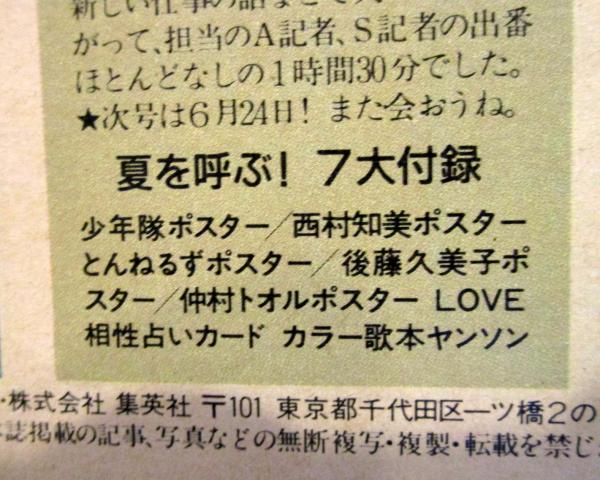 新しい仕事の話など
がって、担当のA記者、S記者の出番
ほとんどなしの1時間30分でした。
★次号は6月24日! また会おうね。
夏を呼ぶ! 7大付録
少年隊ポスター/西村知美ポスター
とんねるずポスター/後藤久美子ポ
スター/仲村トオルポスター LOVE
相性占いカード カラー歌本ヤンソン
・株式会社 集英社 〒101 東京都千代田区一ツ橋2の
誌掲載の記事、写真などの無断複写・複製・転載を禁じ